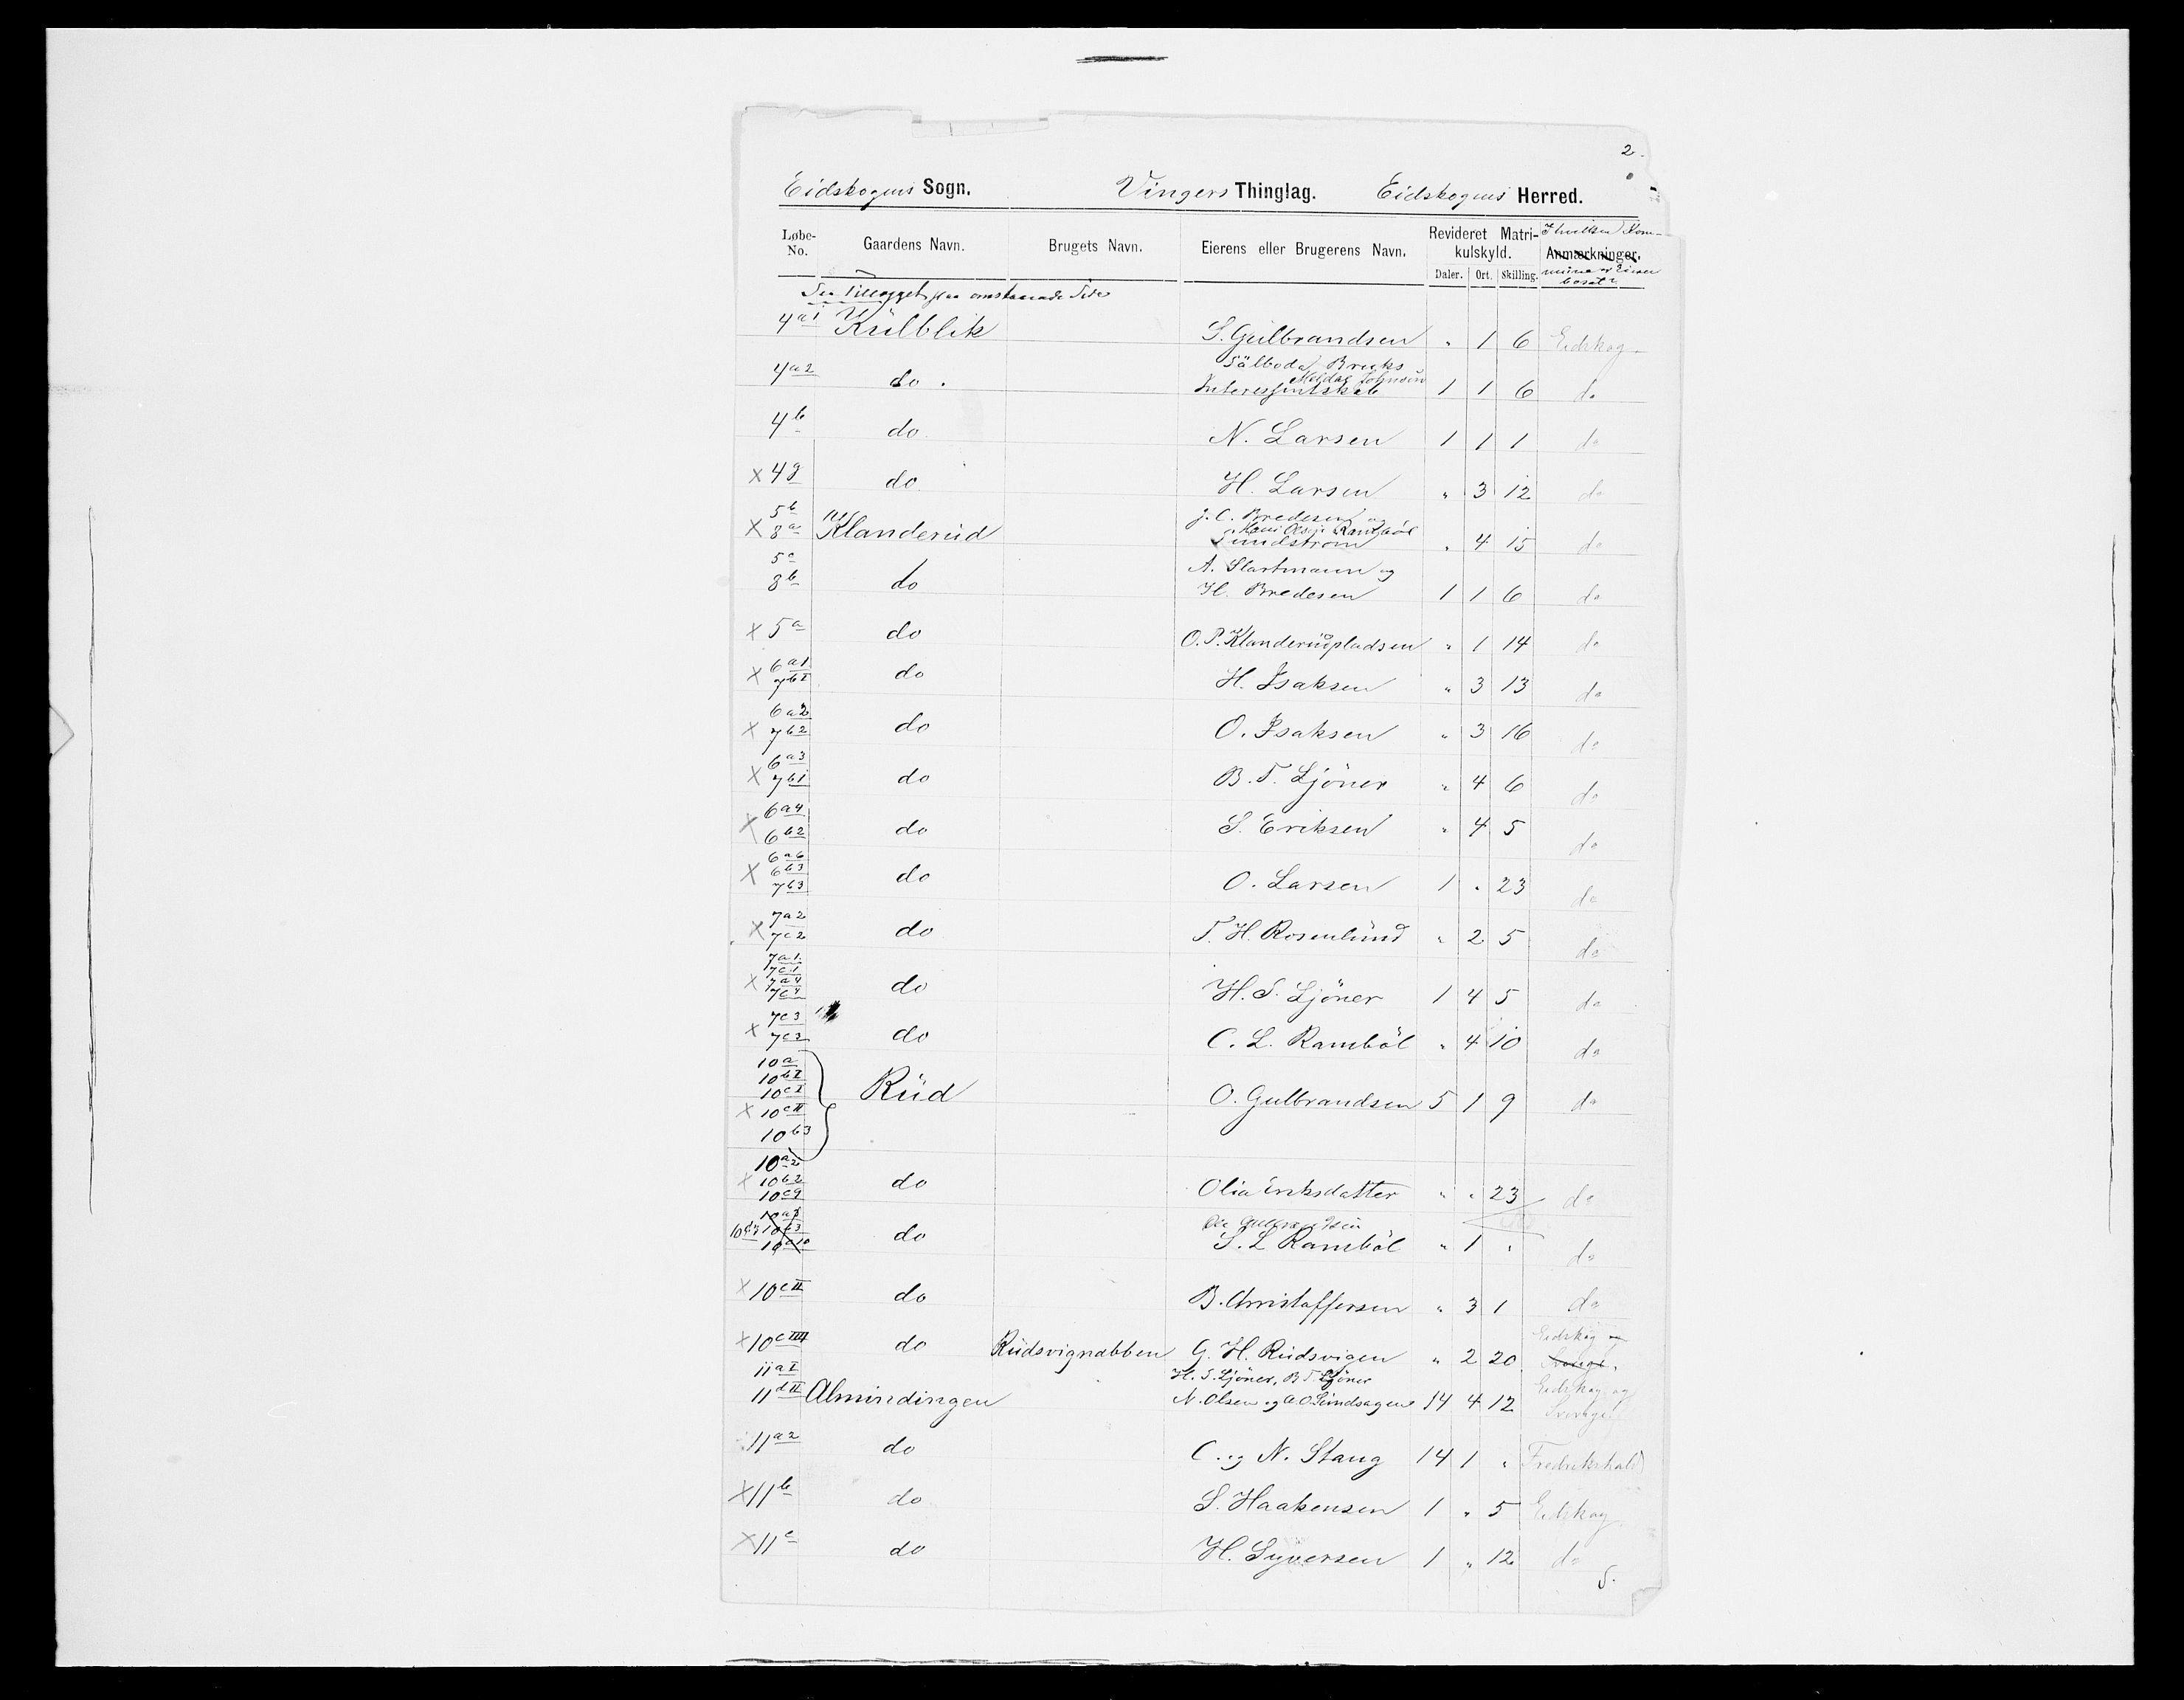 2.
Eidskogens Sogn. Vingers Thinglag. Eidskogens Herred.
Løbe-No. Gaardens Navn. Brugets Navn. Eierens eller Brugerens Navn. Revideret Matrikulskyld. Daler. Ort. Skilling. Anmærkninger. I hvilken Kommune er Eieren bosat?
Se Tillægget paa omstaaende Side
4a1 Külblik S. Gülbrandsen " 1 6 Eidskog
4a2 do. Sälboda Bruks Interessentskab 1 1 6 do
4b do N. Larsen 1 1 1 do
x 4g do H. Larsen " 3 12 do
5b
x 8a Klanderüd J. C. Bredesen og Lundstrøm " 4 15 do
5c
8b do A. Slartmann og H. Bredesen 1 1 6 do
x 5a do O. P. Klanderüdpladsen " 1 14 do
x 6a1 7bI do H. Isaksen " 3 13 do
x 6a2 7b2 do O. Isaksen " 3 16 do
x 6a3 7b1 do B. T. Ljöner " 4 6 do
x 6a4 6b2 do S. Eriksen " 4 5 do
x 6a6 6b3 7b3 do O. Larsen 1 " 23 do
x 7a2 7c2 do T. H. Rosenlünd " 2 5 do
x 7a1 7c1 7a4 7c4 do H. S. Ljöner 1 4 5 do
x 7c3 7c2 do C. L. Ramböl " 4 10 do
10a
10bI
10cI
x 10cII
10b3 Rüd O. Gulbrandsen 5 1 9 do
10a2
x 10b2
10c9 do Olia Eriksdatter " " 23 do
10a3 10c3 10c10 do S. L. Ramböl " 1 " do
x 10cII do B. Christoffersen " 3 1 do
x 10cIIII do Rüdsvignabben G. H. Rüdsvigen " 2 20 Eidskog
11aI
11dII Almindingen H. S. Ljöner, B. T. Ljöner N. Olsen og A. O. Sündsagen 14 4 12 Eidskog og Sverige
11a2 do C. og N. Stang 14 1 " Fredrikshald
x 11b do S. Haakensen 1 " 5 Eidskog
x 11c do H. Syversen 1 " 12 do
S.